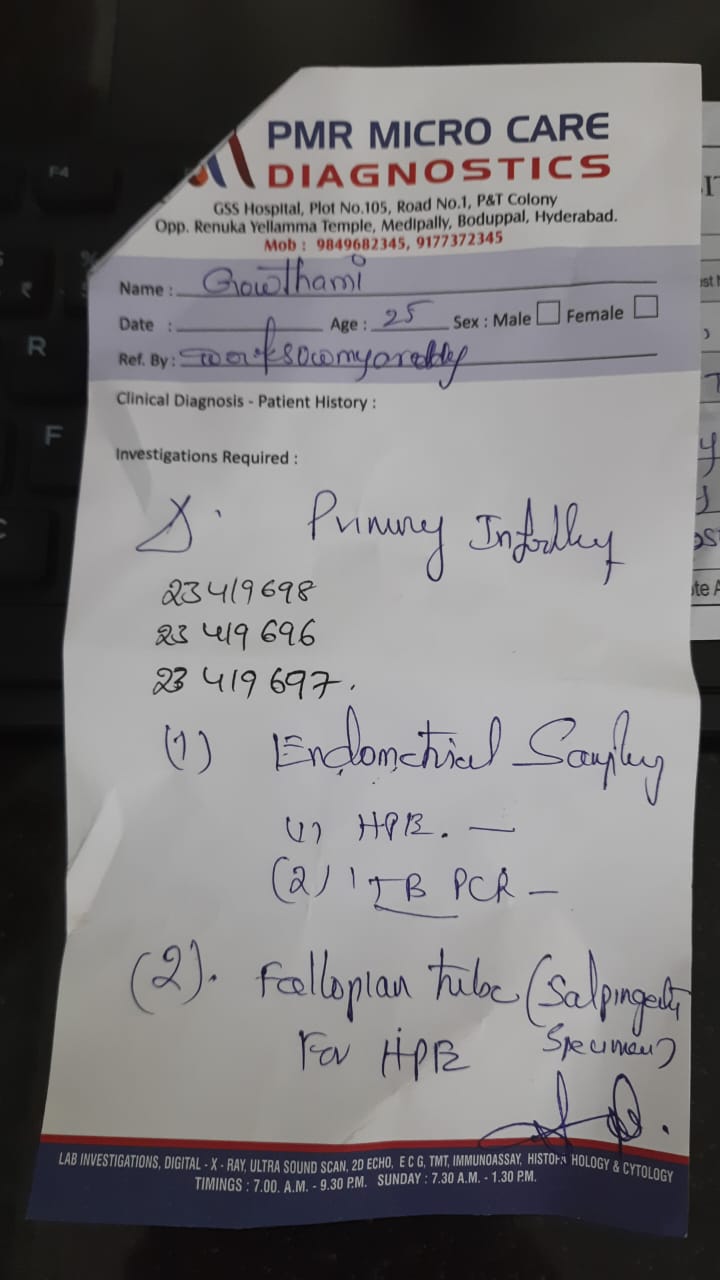 PMR MICRO CARE
DIAGNOSTICS
GSS Hospital, Plot No.105, Road No.1, P&T Colony
Opp. Renuka Yellamma Temple, Medipally, Boduppal, Hyderabad.
Mob : 9849682345, 9177372345
Name : Gowthami
Date : Age : 25 Sex : Male Female
Ref. By : sowmyareddy
Clinical Diagnosis - Patient History :
Investigations Required :
Primary Infertility
23419698
23419696
23419697.
(1) Endometrial Sampling
(1) HPE. —
(2) TB PCR —
(2). Fallopian tube (Salpingectomy
For HPE Specimen)
LAB INVESTIGATIONS, DIGITAL - X - RAY, ULTRA SOUND SCAN, 2D ECHO, E C G, TMT, IMMUNOASSAY, HISTOPATHOLOGY & CYTOLOGY
TIMINGS : 7.00. A.M. - 9.30 P.M. SUNDAY : 7.30 A.M. - 1.30 P.M.